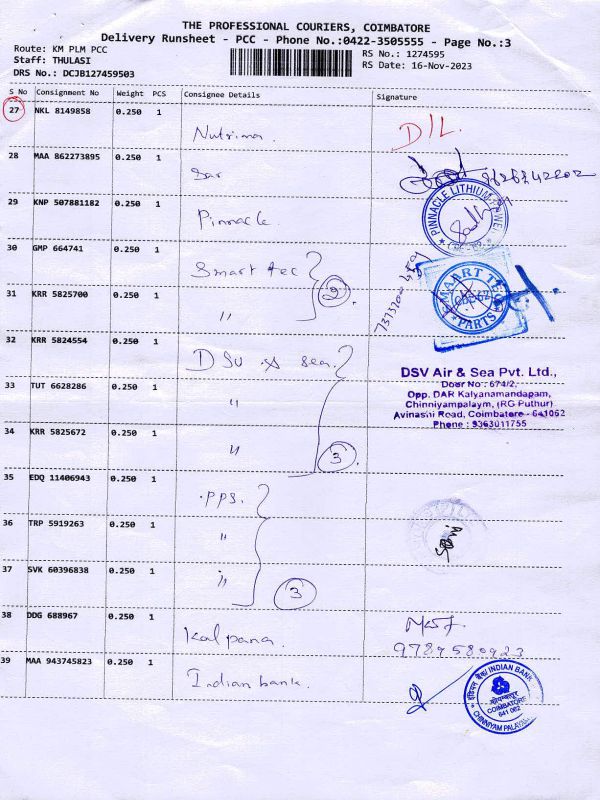 THE PROFESSIONAL COURIERS, COIMBATORE
Delivery Runsheet - PCC - Phone No.:0422-3505555 - Page No.:3
Route: KM PLM PCC
Staff: THULASI
DRS No.: DCJB127459503
RS No.: 1274595
RS Date: 16-Nov-2023
S No Consignment No Weight PCS Consignee Details Signature
27 NKL 8149858 0.250 1
Nutrima. D/L.
28 MAA 862273895 0.250 1
Sar
29 KNP 507881182 0.250 1
Pinnacle. PINNACLE LITHIUM POWER
30 GMP 664741 0.250 1
Smart tec
31 KRR 5825700 0.250 1
" 2 PARTS
32 KRR 5824554 0.250 1
DSV sea.
DSV Air & Sea Pvt. Ltd.,
Door No : 674/2,
Opp. DAR Kalyanamandapam,
Chinniyampalaym, (RG Puthur)
Avinashi Road, Coimbatore - 641062
Phone : 9363011755
33 TUT 6628286 0.250 1
"
34 KRR 5825672 0.250 1
" 3
35 EDQ 11406943 0.250 1
PPS.
36 TRP 5919263 0.250 1
"
37 SVK 60396838 0.250 1
" 3
38 DDG 688967 0.250 1
Kalpana.
9789580923
39 MAA 943745823 0.250 1
Indian bank.
INDIAN BANK
COIMBATORE
641 062
CHINNIYAM PALAYAM